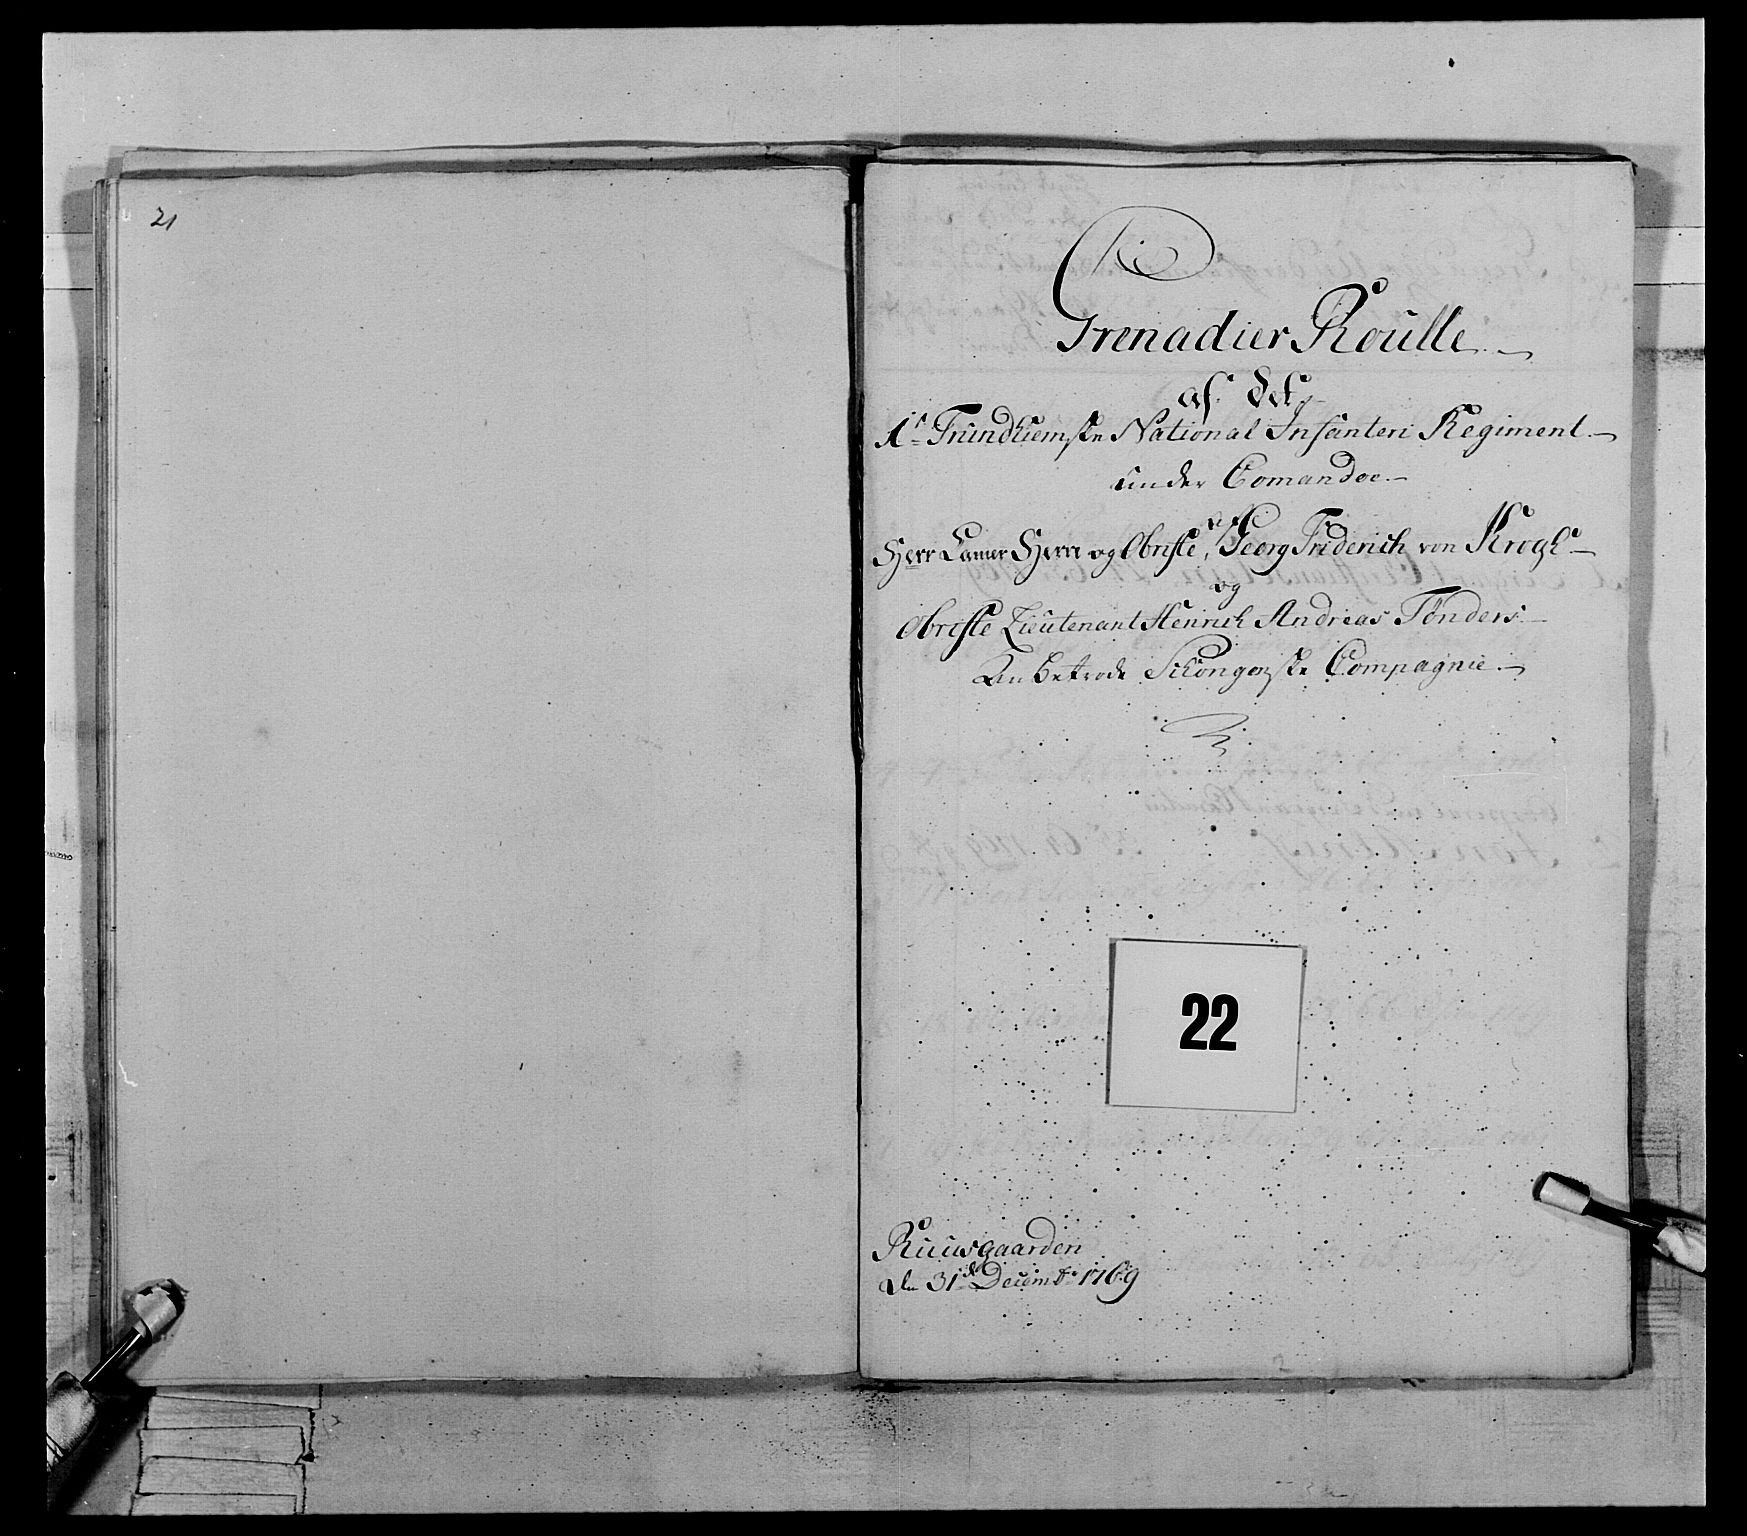 21
Grenadier Roulle
af det
1te Trundhiemske National Infanteri Regiment
under Comandoe
Herr Camer Herre og Obriste Georg Friderich von Krogh
og
Obriste Lieutenant Henrich Andreas Tønders
An betrode Schongenske Compagnie
22
Ruusgaarden
den 31de Decembr 1769